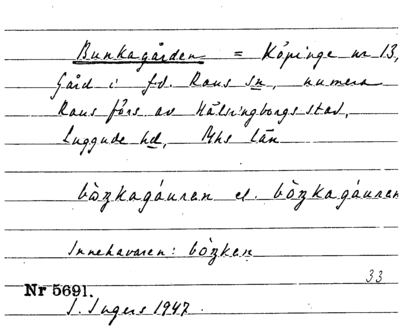 Bunkagården = Köpinge nr 13,
Gård i f.d. Raus sn, numera
Raus förs. av Hälsingborgs stad,
Luggude hd, Mhs län
bòŋkagáuɹen el. bòŋkagáuɹen
Innehavaren: bòŋken
33
Nr 5691.
I. Ingers 1947.